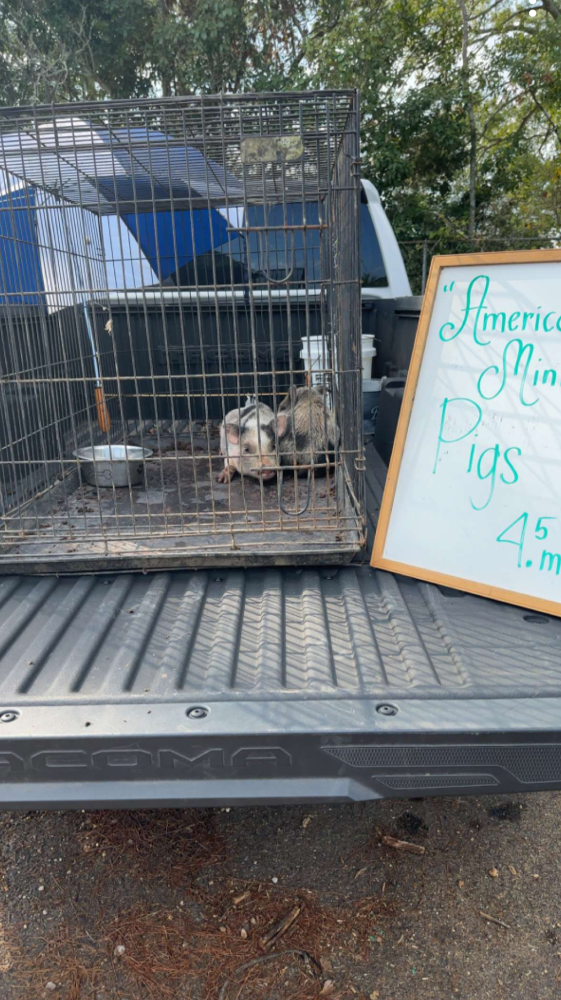 "Americ
Min
Pigs
4.5
.m
ACOMA